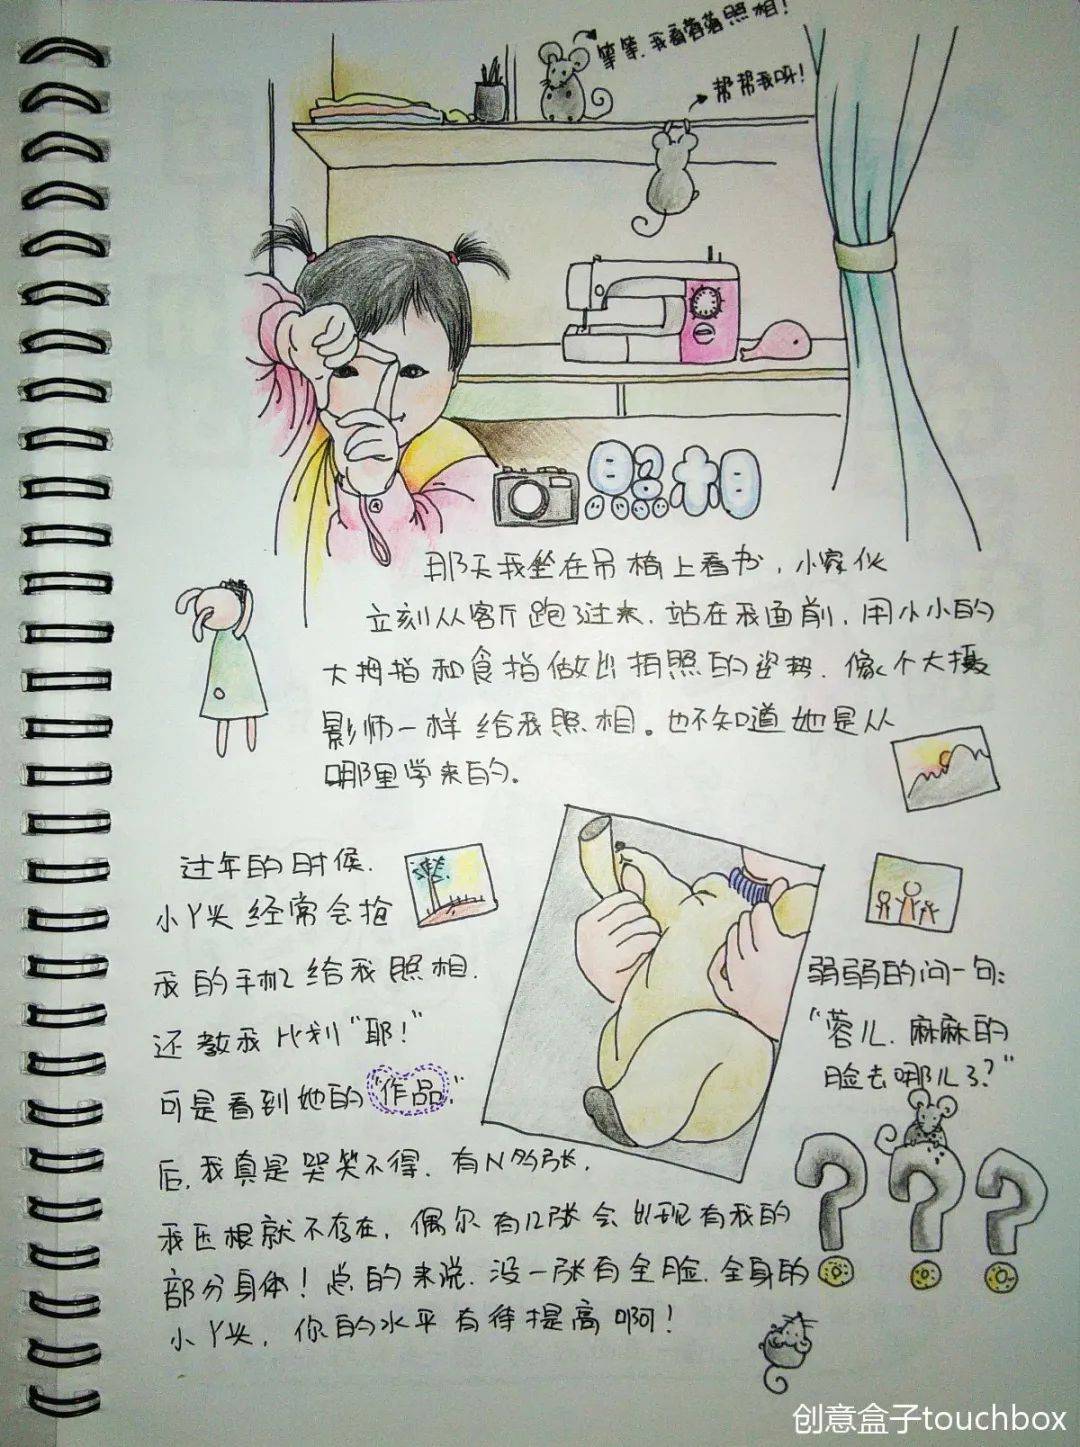 等等,我看蓉蓉照相!
帮帮我呀!
照相
那天我坐在吊椅上看书,小家伙
立刻从客厅跑了过来,站在我面前,用小小的
大拇指和食指做出拍照的姿势,像个大摄
影师一样给我照相。也不知道她是从
哪里学来的。
过年的时候,
小丫头经常会抢
我的手机给我照相,
还教我比划“耶!”
可是看到她的“作品”
后,我真是哭笑不得,有N多张,
我压根就不存在,偶尔有几张会出现有我的
部分身体!总的来说,没一张有全脸,全身的
小丫头,你的水平有待提高啊!
弱弱的问一句:
“蓉儿,麻麻的
脸去哪儿了?”
???
创意盒子touchbox